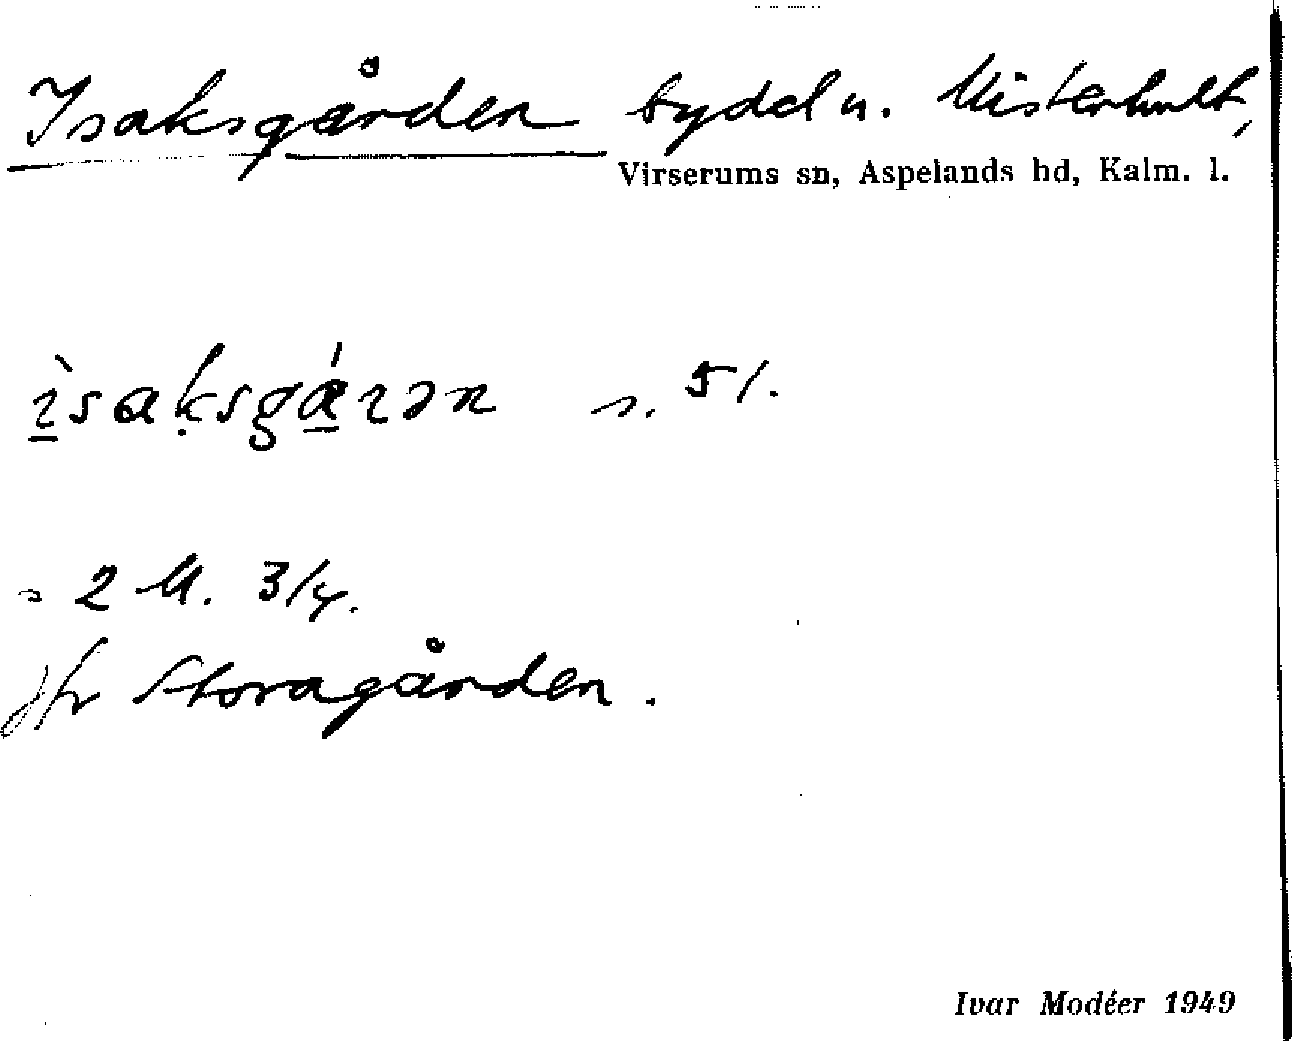 Isaksgården bydel u. Misterhult,
Virserums sn, Aspelands hd, Kalm. l.
ìsak̩sgárən s. 51.
= 2 M. 3/4.
Jfr Storagården.
Ivar Modéer 1949